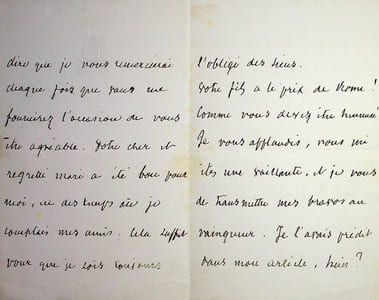 dire que je vous remercierai
chaque fois que vous me
fournirez l'occasion de vous
être agréable. Votre cher et
regretté mari a été bon pour
moi, en des temps où je
comptais mes amis. Cela suffit
pour que je sois toujours
l'obligé des siens.
Votre fils a le prix de Rome !
Comme vous devez être heureuse
Je vous applaudis, vous qui
êtes une vaillante, et je vous
de transmettre mes bravos au
vainqueur. Je l'avais prédit
dans mon article, hein ?